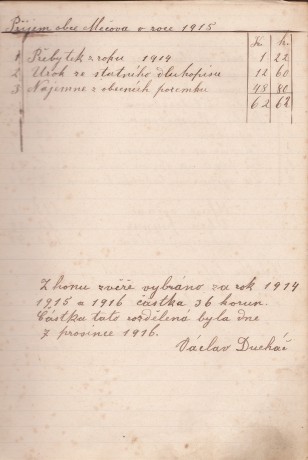 Příjem obce Mečova v roce 1915
K. h.
1 Přebytek z roku 1914 1 22
2 Úrok ze státního dluhopisu 12 60
3 Nájemné z obecních pozemků 48 80
62 62
Z honu zvěře vybráno za rok 1914
1915 a 1916 částka 36 korun.
Částka tato rozdělená byla dne
7 prosince 1916.
Václav Ducháč